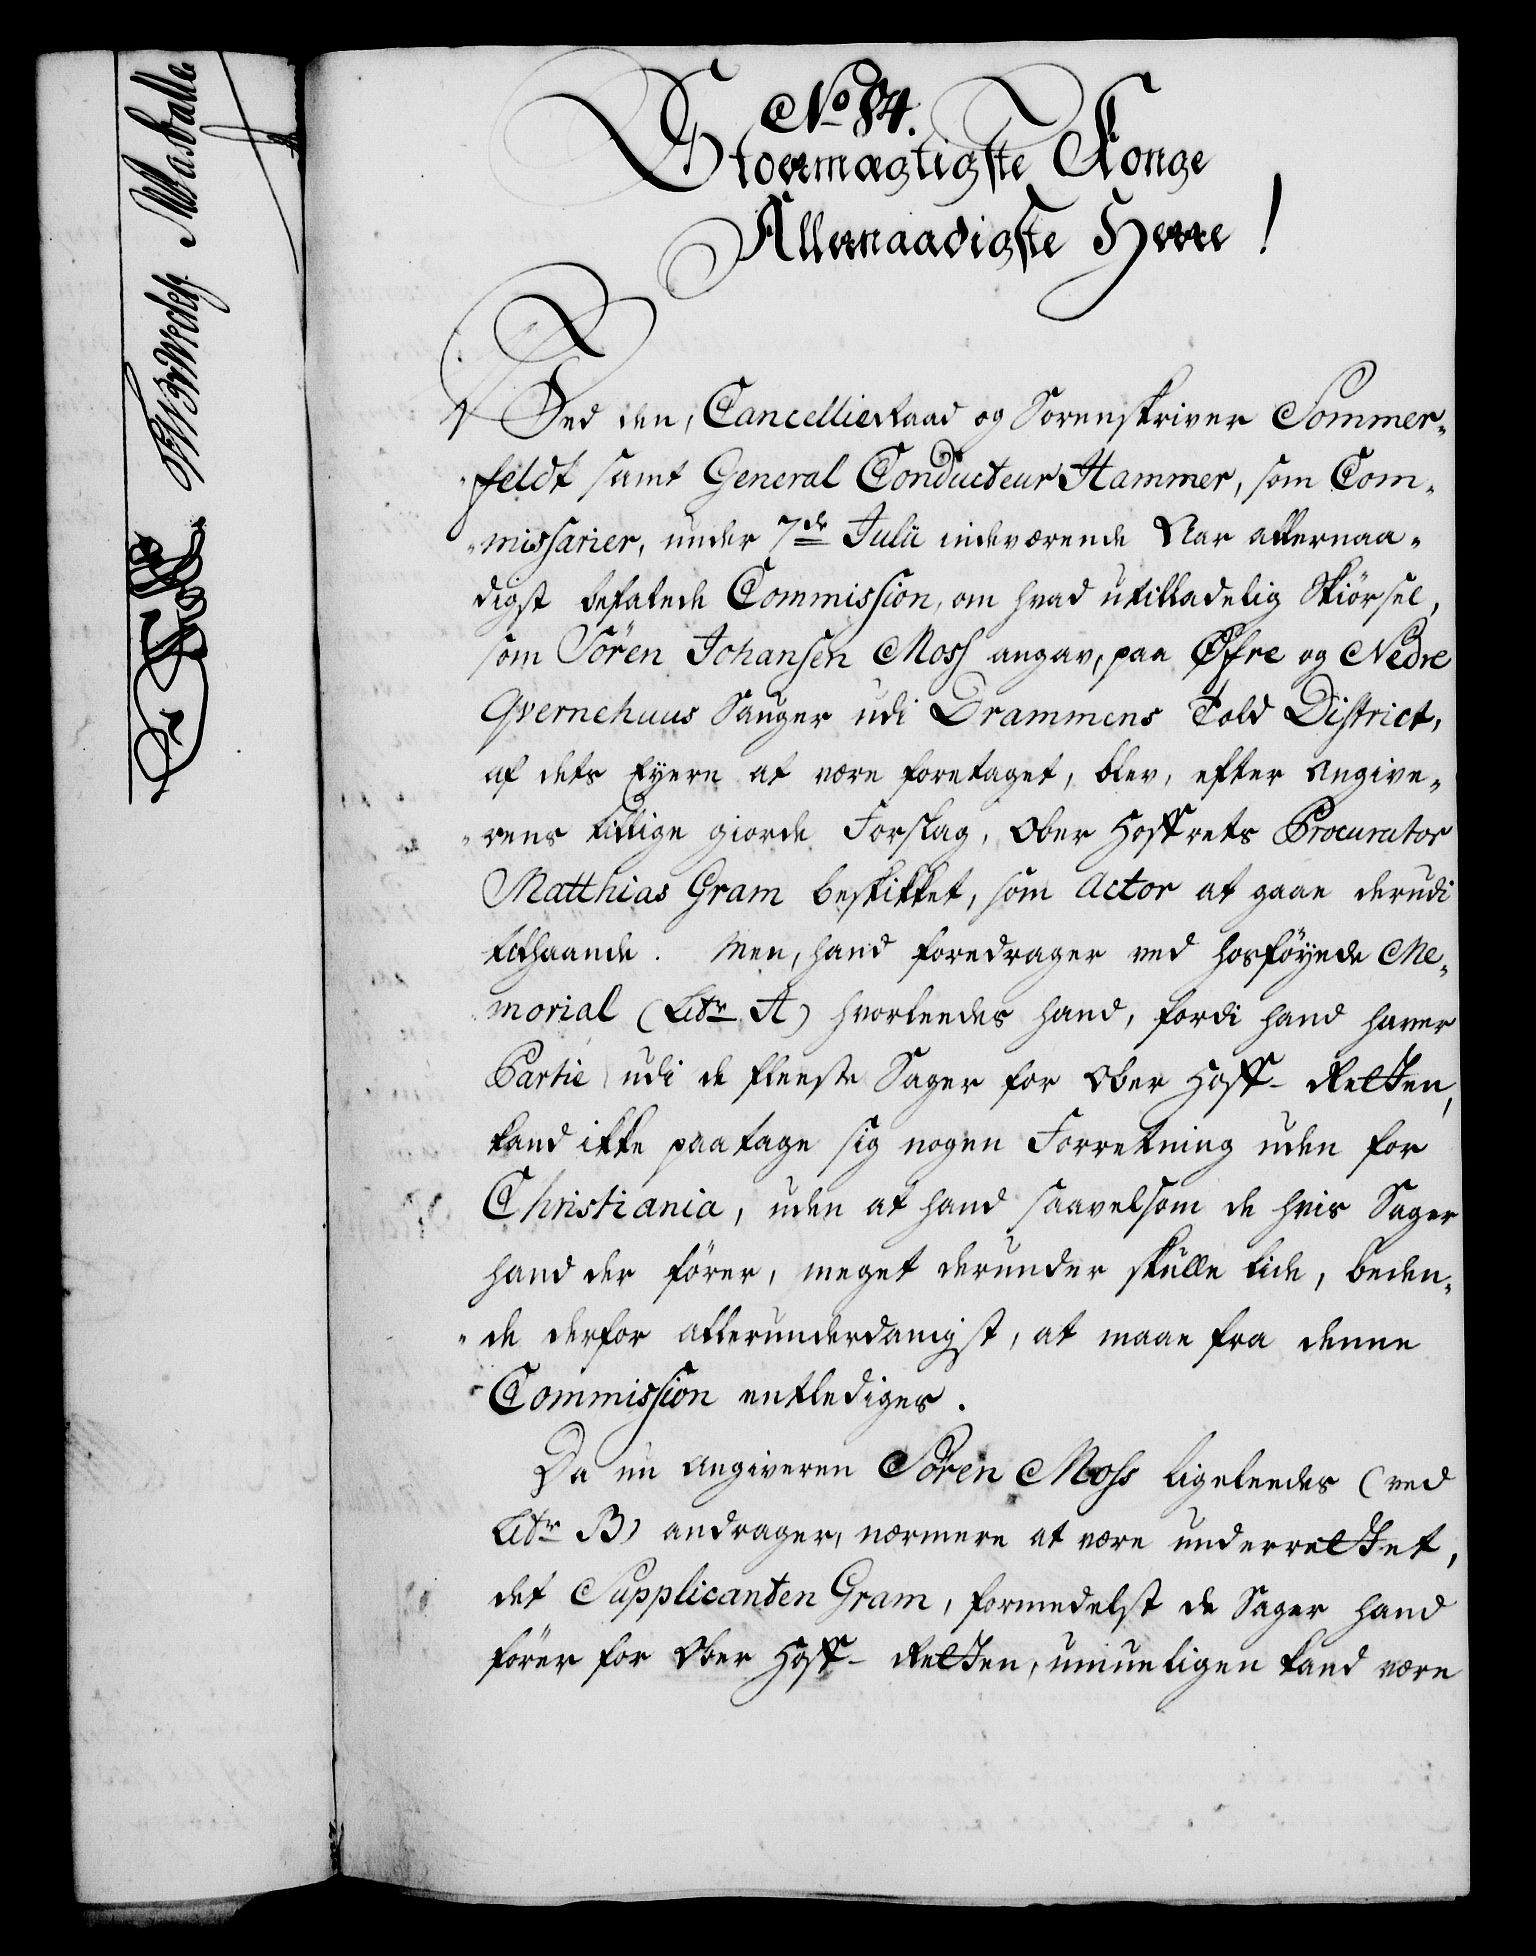 No 84.
Stormægtigste Konge
Allernaadigste Herre!
Ved den, CancellieRaad og Sorenskriver Sommer-
feldt samt General Conducteur Hammer, som Com-
missarier, under 7de Julii indeværende Aar allernaa-
digst befalede Commission, om hvad utilladelig Skiörsel,
som Sören Johansen Moss angav, paa Øfre og Nedre
Qvernehuus Sauger udi Drammens Told District,
af dets Eyere at være foretaget, blev, efter Angive-
rens tillige giorde Forslag, Ober Hoffrets Procurator
Matthias Gram beskikket, som Actor at gaae derudi
tilhaande. Men, hand foredrager ved hosföyede Me-
morial (Litr A) hvorleedes hand, fordi hand haver
Partie udi de fleeste Sager for Ober Hoff-Retten,
kand ikke paatage sig nogen Forretning uden for
Christiania, uden at hand saavelsom de hvis Sager
hand der förer, meget derunder skulle lide, beden-
de derfor allerunderdanigst, at maae fra denne
Commission entlediges.
Da nu Angiveren Sören Moss ligeleedes (ved
Litr B) andrager, nærmere at være underrettet,
det Supplicanten Gram, formedelst de Sager hand
förer for Ober Hoff-Retten, umueligen kand være